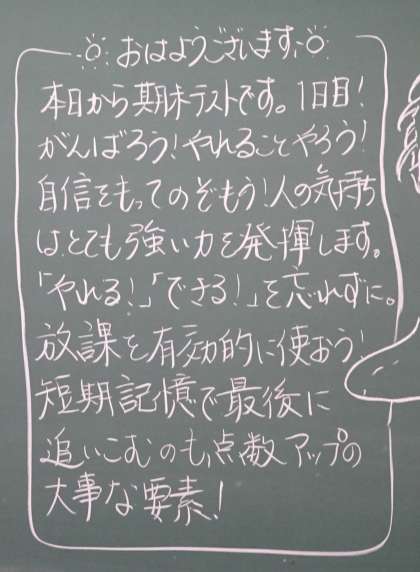 おはようございます
本日から期末テストです。1日目!
がんばろう!やれることやろう!
自信をもってのぞもう!人の気持ち
はとても強い力を発揮します。
「やれる!」「できる!」を忘れずに。
放課を有効的に使おう!
短期記憶で最後に
追いこむのも、点数アップの
大事な要素!